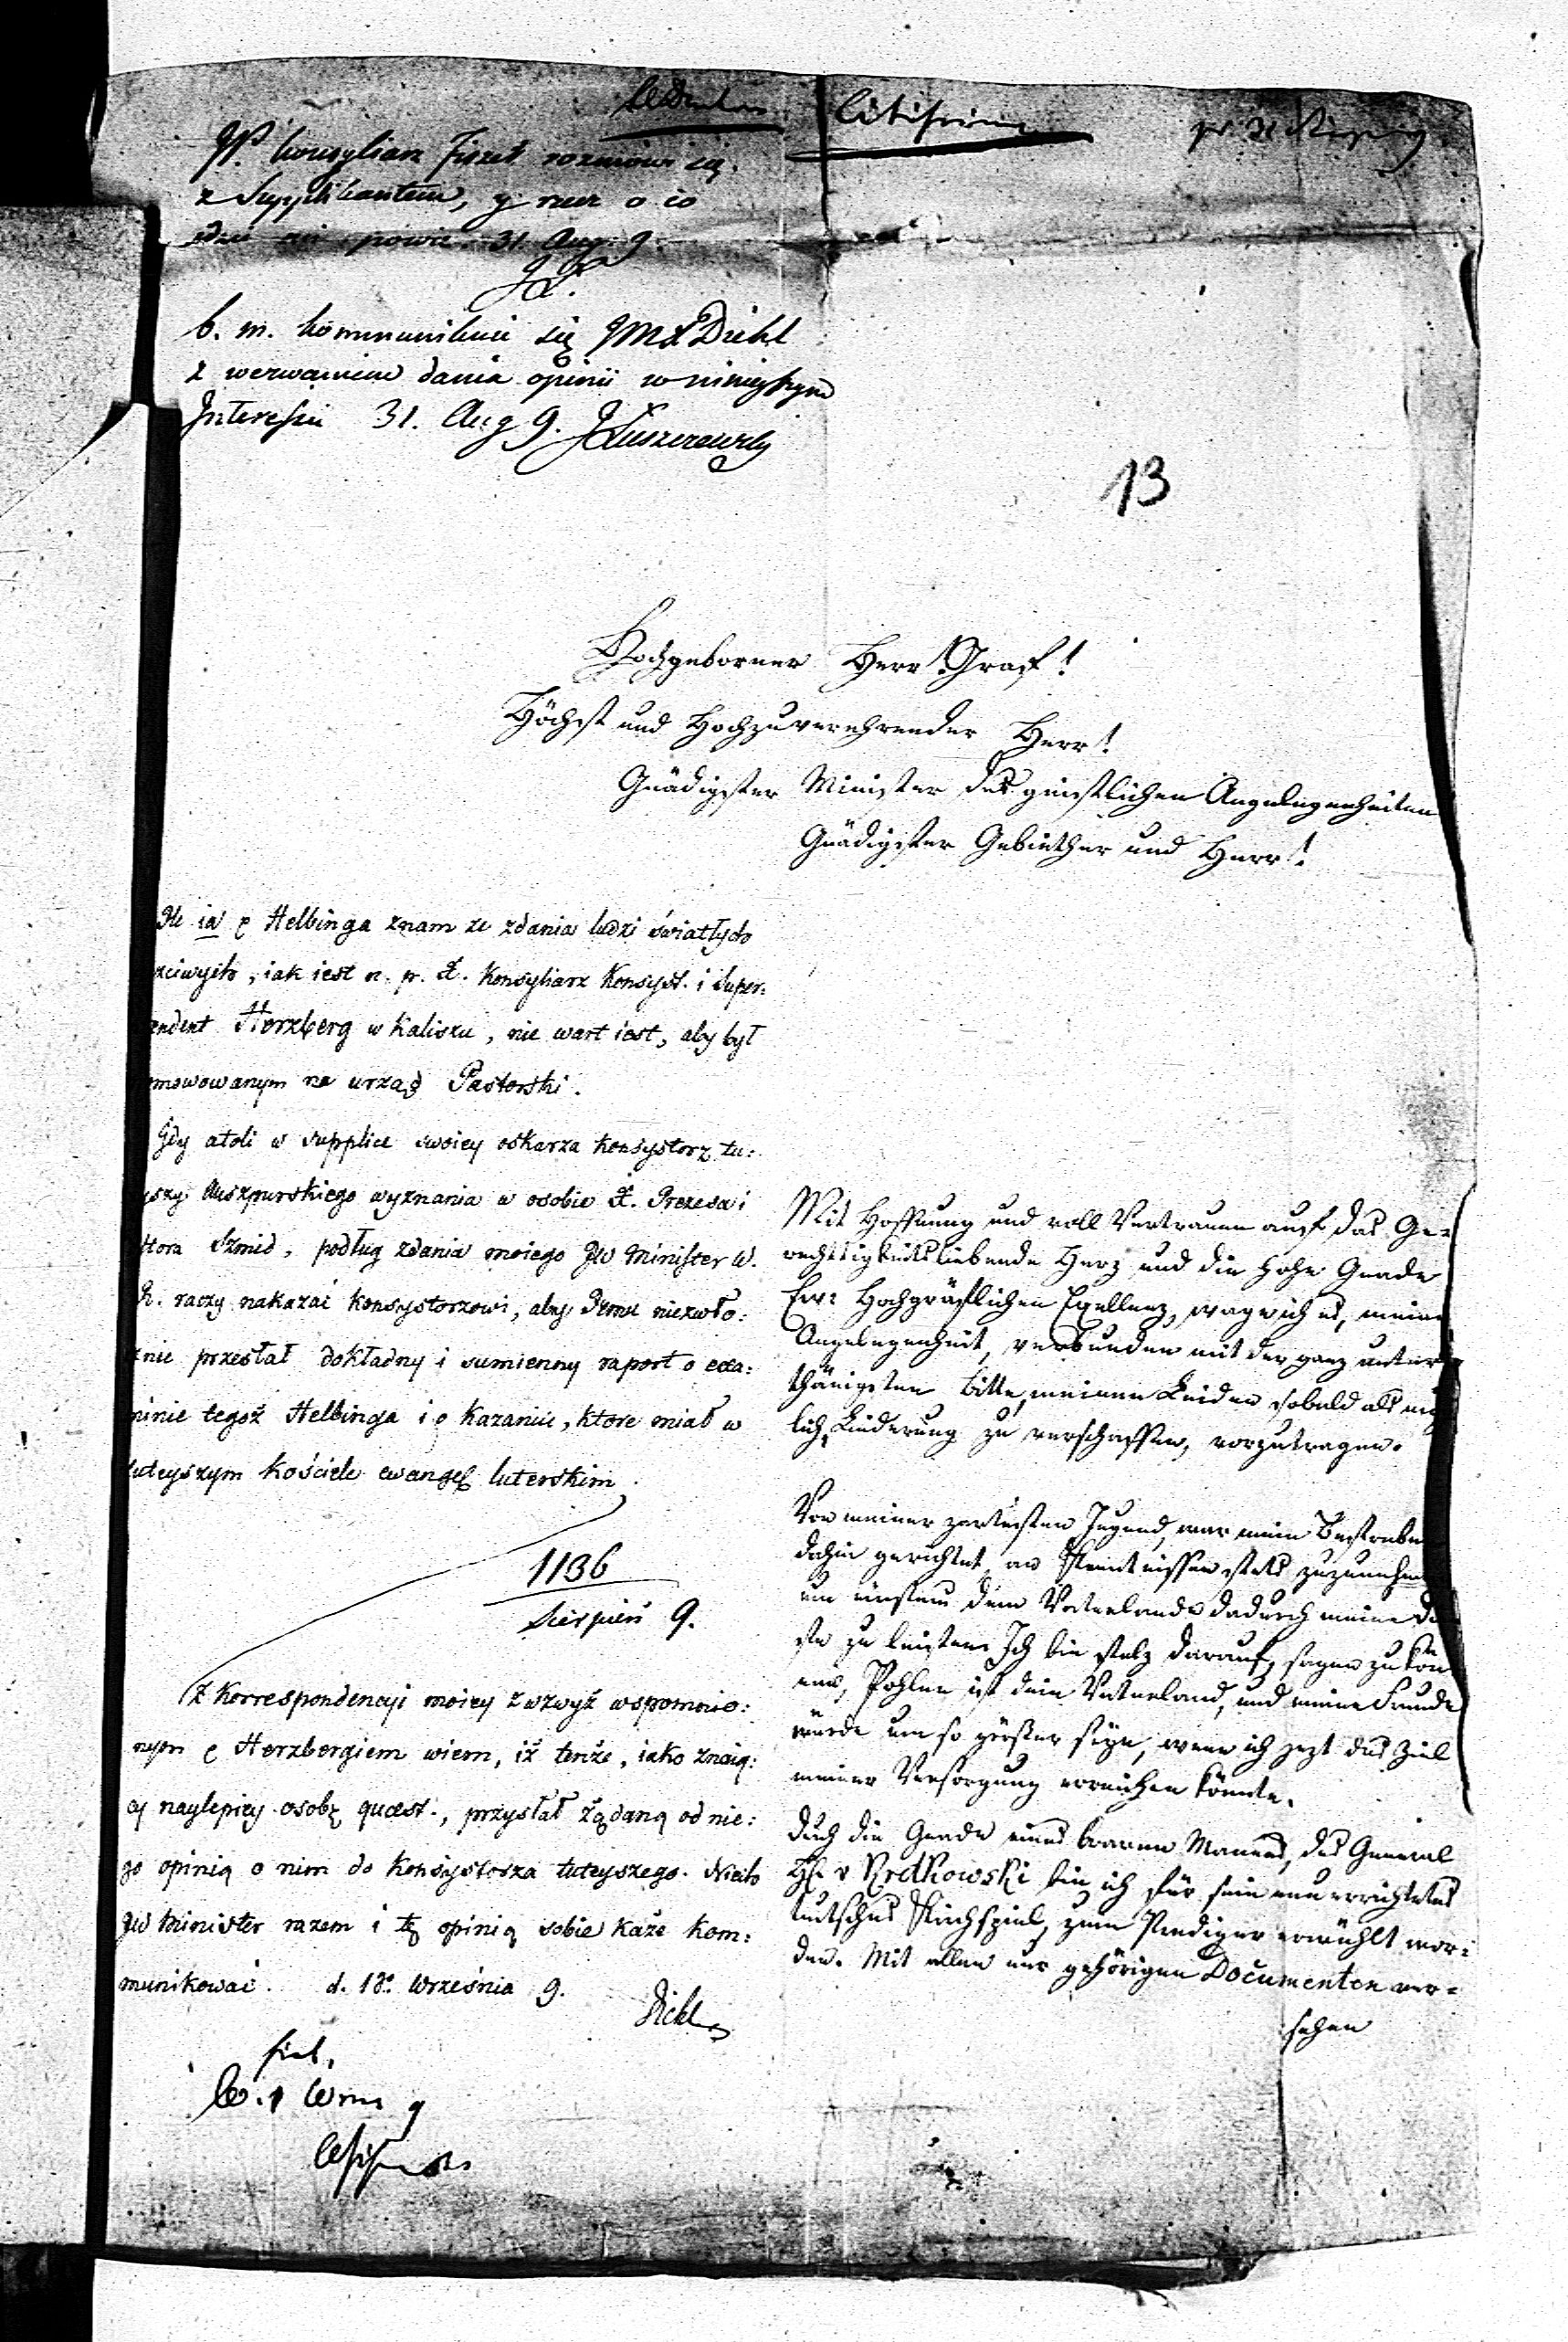 citissime
JP. Konsyliarz Fiszet rozmówi się
z Supplikantem, y rzecz o co
idzie mi powie. 31. Aug. 9.
b. m. kommunikuie się JMX Diehl
z wezwaniem dania opinii w ninieyszym
Interessie 31. Aug 9. JŁuszczewsky
13
Hochgeborner Herr Graf!
Höchst und Hochzuverehrender Herr!
Gnädigster Minister der geistlichen Angelegenheiten
Gnädigster Gebiether und Herr!
Ile ia P Helbinga znam ze zdania ludzi światłych
czciwych, iak iest n. p. X. Konsyliarz Konsyst. i Super:
endent Herzberg w Kaliszu, nie wart iest, aby był
mowowanym na urząd Pastorski.
Gdy atoli w supplice swoiey oskarza konsystorz tu:
yszy Auszpurskiego wyznania w osobie X. Prezesa i
ktora Szmid, podług zdania moiego JW Minister W.
R. raczy nakazać konsystorzowi, aby Jemu niezwło:
znie przesłał dokładny i sumienny raport o exa:
minie tegoż Helbinga i o kazaniu, ktore miał w
tuteyszym kościele ewangel luterskim
1136
Sierpień 9.
Z korrespondencyi moiey z wzwyż wspomnio:
nym P Herzbergiem wiem, iż tenże, iako znaią:
cy naylepiey osobę quaest., przysłał żądaną od nie:
go opinią o nim do Konsystorza tuteyszego. Niech
JW Minister razem i tę opinią sobie każe kom:
munikować. d. 18. Września 9.
Diehl
fiat.
Mit Hoffnung und voll Vertrauen auf das Ge-
rechtigkeitsliebende Herz und die hohe Gnade
Ew: Hochgräflichen Exellenz, wage ich es, meine
Angelegenheit, verbunden mit der ganz unter
thänigsten Bitte, meinen Leiden sobald als mög
lich Linderung zu verschaffen, vorzutragen.
Von meiner zartesten Jugend, war mein Bestreben
dahin gerichtet, an Kenntnissen stets zuzunehm
um einstens dem Vaterlande dadurch meine Di
ste zu leisten. Ich bin stolz darauf, sagen zu kön
nen, Pohlen ist dein Vaterland, und meine Freude
würde um so größer seyn, wenn ich jezt das Ziel
meiner Versorgung erreichen könnte.
Duch die Gnade eines braven Mannes, des General
H v Redkowski bin ich für sein neu errichtetes
teutsches Kirchspiel, zum Prediger erwählt wor:
den. Mit allen nur gehörigen Documenten ver-
sehen